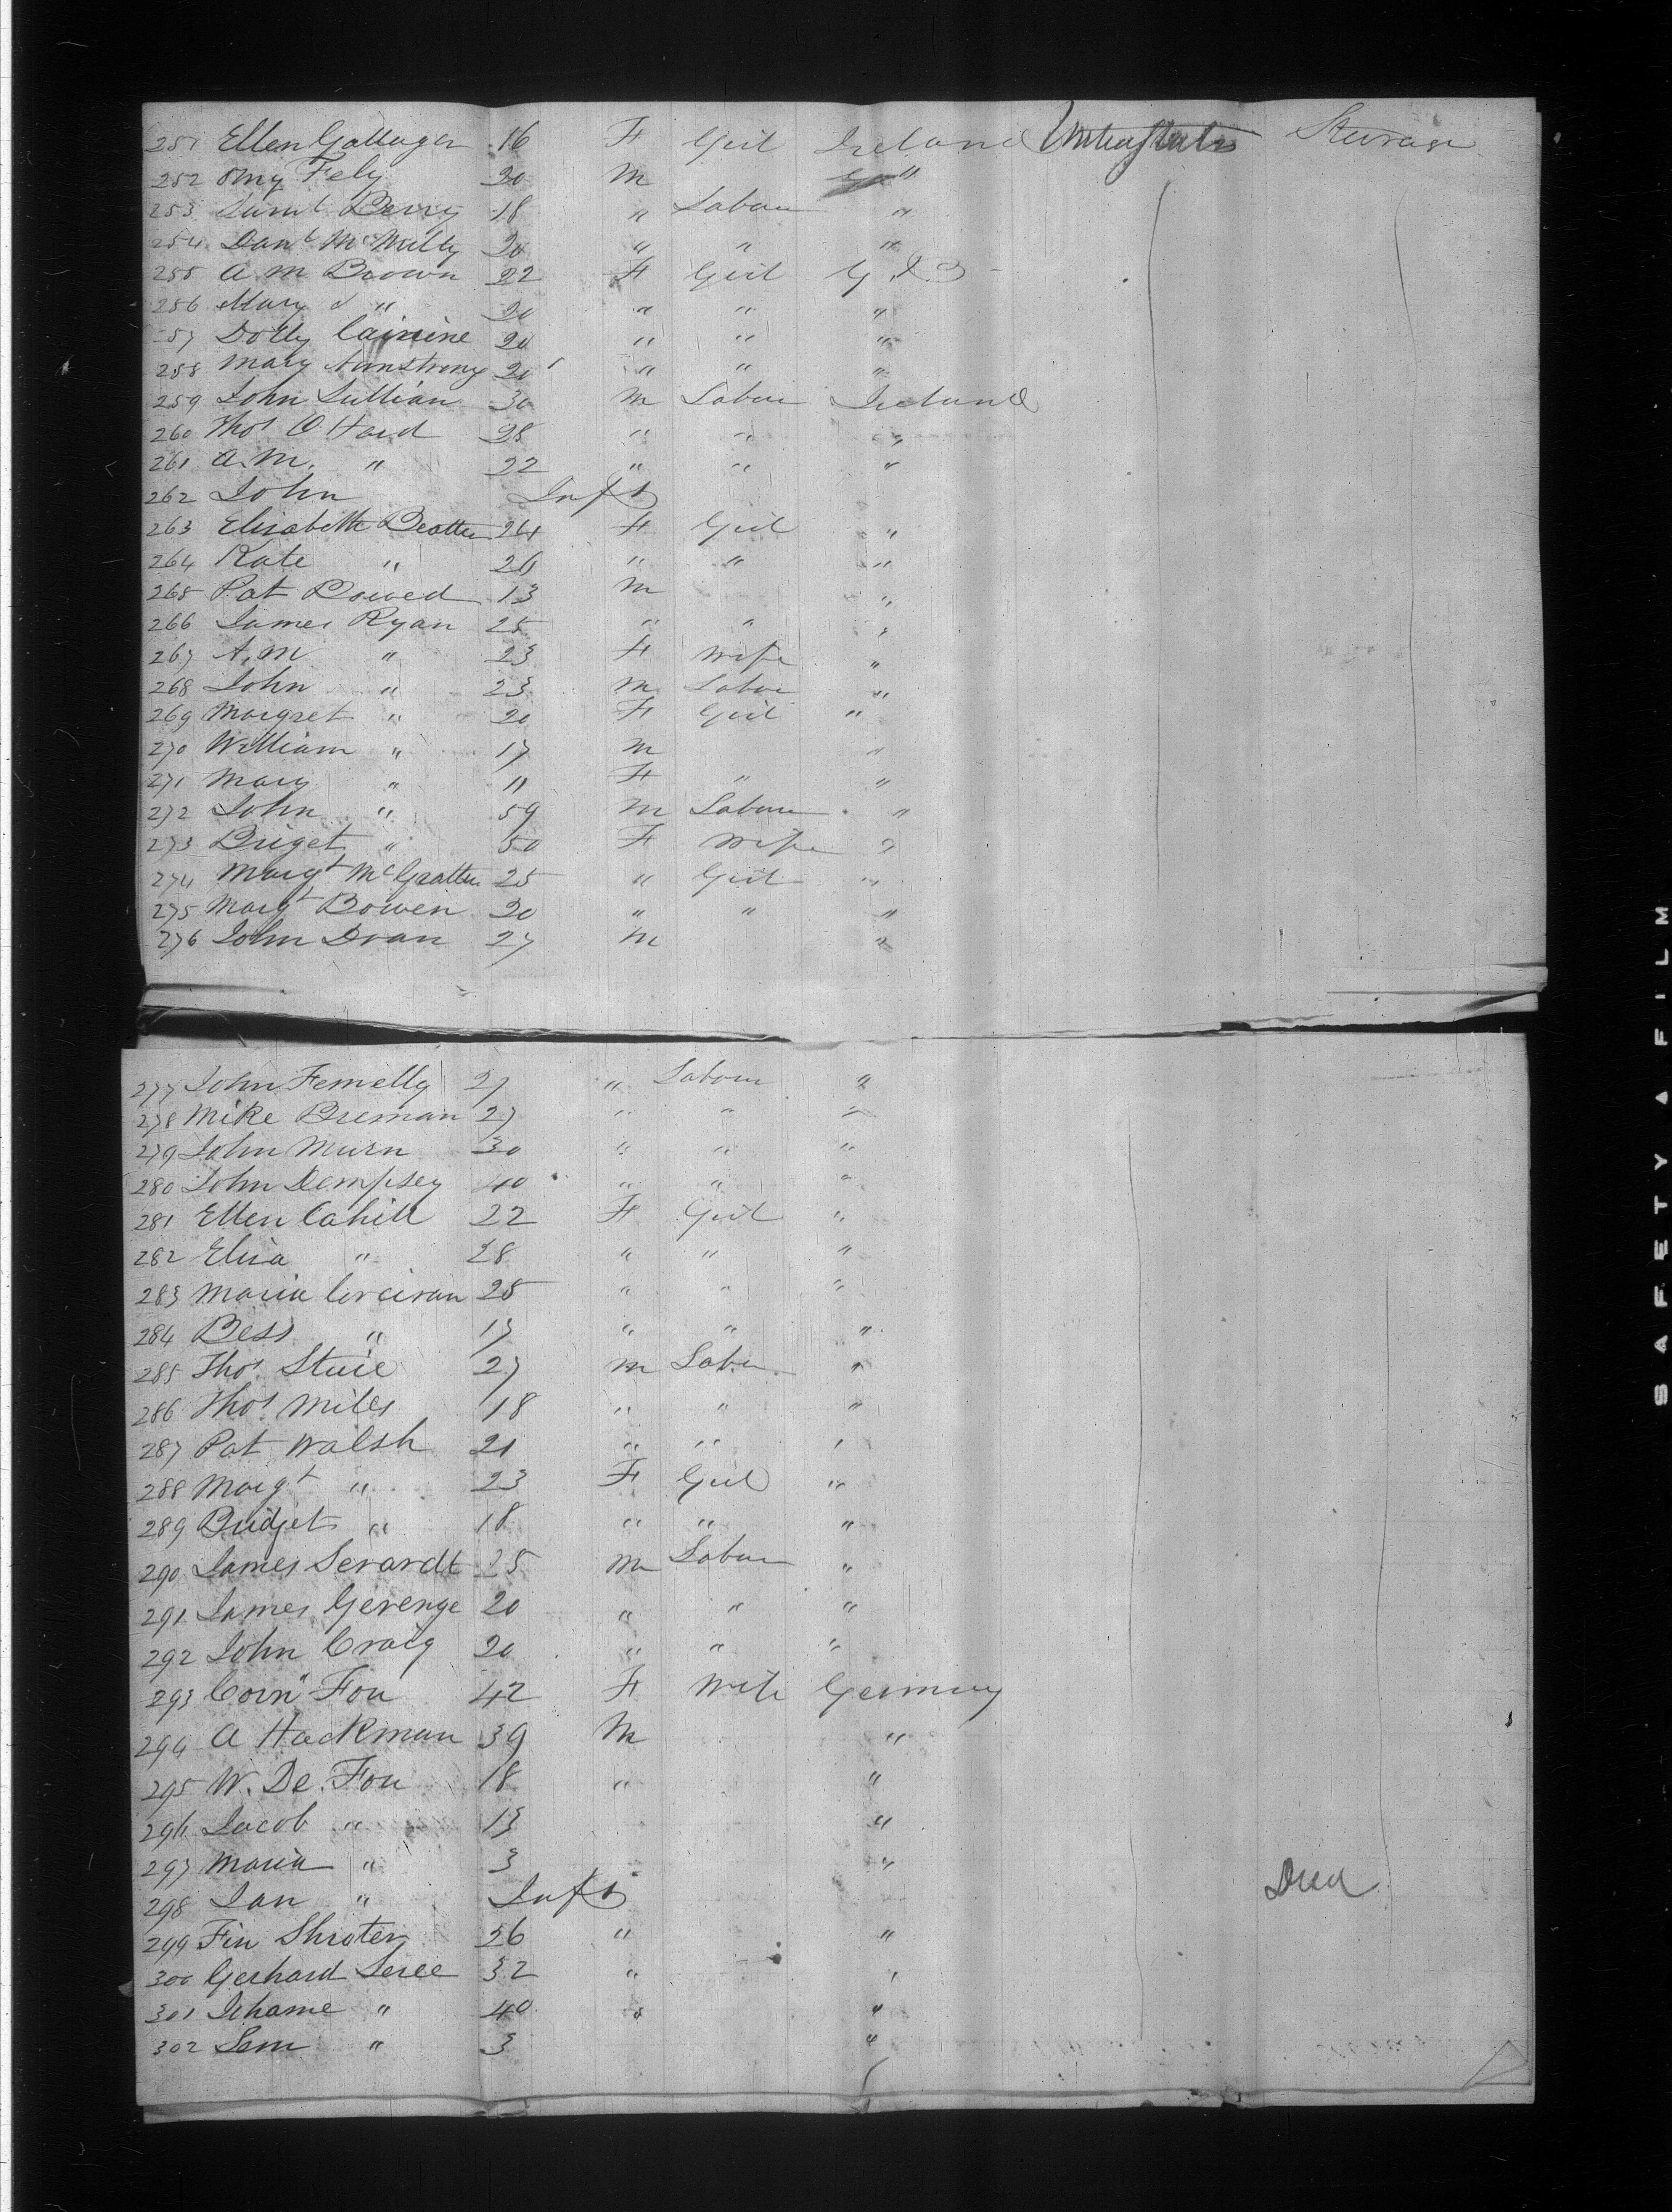 251 Ellen Gallager 16 F Girl Ireland United States Steerage
252 Fely 20 M "
253 Saml Berry 18 " Labour "
254 Danl McMilly 20 " " "
255 A M Brown 22 F Girl G. B
256 Mary " 20 " " "
257 Dolly 20 " " "
258 Mary Armstrong 20 " " "
259 John Sullian 30 M Labour Ireland
260 Thos O Hard 28 " " "
261 A. M. " 22 " " "
262 John Inft
263 Elisabeth Beatten 24 F Girl "
264 Kate " 26 " " "
265 Pat 13 M "
266 James Ryan 25 " " "
267 A. M " 23 F Wife "
268 John " 23 M Labor "
269 Margret " 20 F Girl "
270 William " 17 M "
271 Mary " 11 F " "
272 John " 59 M Labour "
273 Briget " 50 F Wife "
274 Margt McGratten 25 " Girl "
275 Margt Bowen 20 " " "
276 John Dran 27 M "
277 John Femelly 27 " Labour "
278 Mike Breman 27 " " "
279 John Murn 30 " " "
280 John Dempsey 40 " " "
281 Ellen Cahill 22 F Girl "
282 Eliza " 28 " " "
283 Maria Corciran 25 " " "
284 Bess " 17 " " "
285 Thos 27 M Labor "
286 Thos Miles 18 " " "
287 Pat Walsh 21 " " "
288 Margt " 23 F Girl "
289 Bridjet " 18 " " "
290 James Serardt 25 M Labour "
291 James Gerenge 20 " " "
292 John Craig 20 " " "
293 Corn" Fou 42 F Wife Germany
294 A Hackman 39 M "
295 W. De. Fou 18 " "
296 Jacob " 13 "
297 Maria " 3 "
298 Jan " Inft Died
299 Fin Shroter 26 " "
300 Gerhard 32 " "
301 " 40 " "
302 " 3 "
SAFETY A FILM